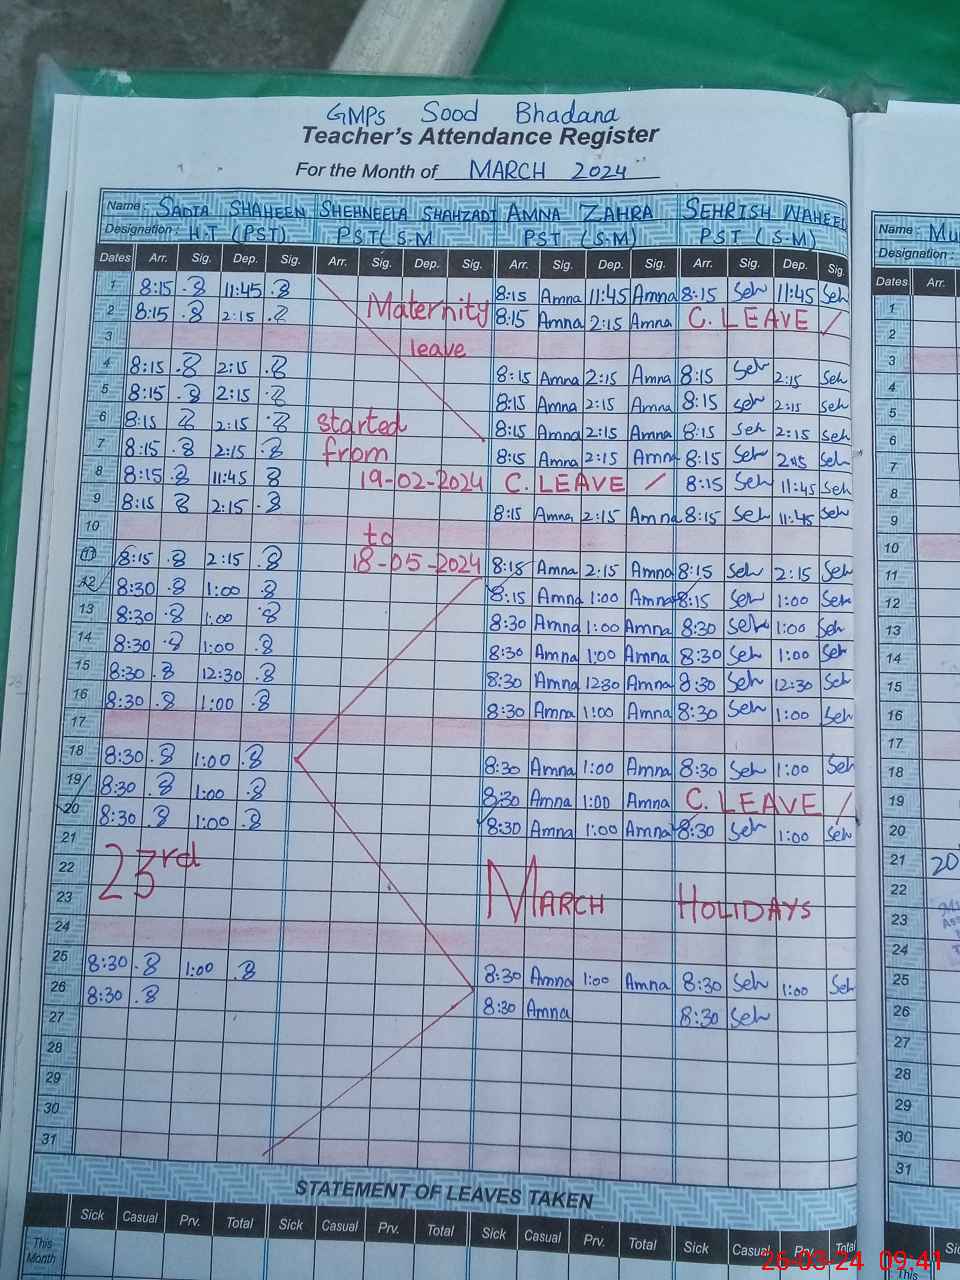 GMPs Sood Bhadana
Teacher's Attendance Register
For the Month of MARCH 2024
Name: SADIA SHAHEEN SHEHNEELA SHAHZADI AMNA ZAHRA SEHRISH WAHEED Name: Mu
Designation: H.T (PST) PST (S.M PST (S.M) PST (S.M) Designation:
Dates Arr. Sig. Dep. Sig. Arr. Sig. Dep. Sig. Arr. Sig. Dep. Sig. Arr. Sig. Dep. Sig. Dates Arr.
1 8:15 11:45 8:15 Amna 11:45 Amna 8:15 Seh 11:45 Seh 1
2 8:15 2:15 Maternity 8:15 Amna 2:15 Amna C. LEAVE / 2
3 leave 3
4 8:15 2:15 8:15 Amna 2:15 Amna 8:15 Seh 2:15 Seh 4
5 8:15 2:15 8:15 Amna 2:15 Amna 8:15 Seh 2:15 Seh 5
6 8:15 2:15 started 8:15 Amna 2:15 Amna 8:15 Seh 2:15 Seh 6
7 8:15 2:15 from 8:15 Amna 2:15 Amna 8:15 Seh 2:15 Seh 7
8 8:15 11:45 19-02-2024 C. LEAVE / 8:15 Seh 11:45 Seh 8
9 8:15 2:15 8:15 Amna 2:15 Amna 8:15 Seh 11:45 Seh 9
10 to 10
11 8:15 2:15 18-05-2024 8:15 Amna 2:15 Amna 8:15 Seh 2:15 Seh 11
12 8:30 1:00 8:15 Amna 1:00 Amna 8:15 Seh 1:00 Seh 12
13 8:30 1:00 8:30 Amna 1:00 Amna 8:30 Seh 1:00 Seh 13
14 8:30 1:00 8:30 Amna 1:00 Amna 8:30 Seh 1:00 Seh 14
15 8:30 12:30 8:30 Amna 1230 Amna 8:30 Seh 12:30 Seh 15
16 8:30 1:00 8:30 Amna 1:00 Amna 8:30 Seh 1:00 Seh 16
17 17
18 8:30 1:00 8:30 Amna 1:00 Amna 8:30 Seh 1:00 Seh 18
19 8:30 1:00 8:30 Amna 1:00 Amna C. LEAVE / 19
20 8:30 1:00 8:30 Amna 1:00 Amna 8:30 Seh 1:00 Seh 20
21 21 20
22 23rd MARCH HOLIDAYS 22
23 23
24 24
25 8:30 1:00 8:30 Amna 1:00 Amna 8:30 Seh 1:00 Seh 25
26 8:30 8:30 Amna 8:30 Seh 26
27 27
28 28
29 29
30 30
31 31
STATEMENT OF LEAVES TAKEN
Sick Casual Prv. Total Sick Casual Prv. Total Sick Casual Prv. Total Sick Casual Prv. Total
This Month
This
26-03-24 09:41